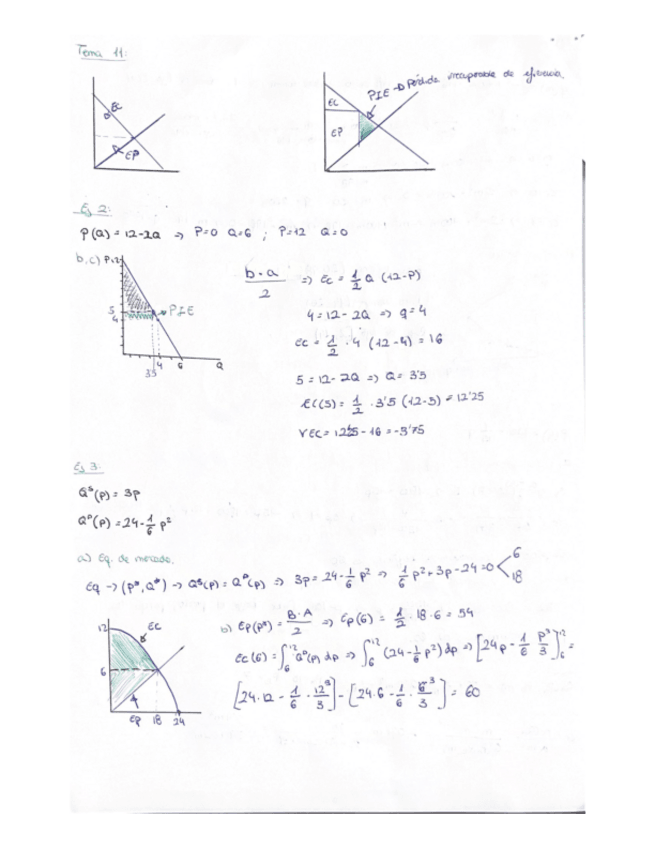 Tema 11:
EC
EP
EC
EP
PIE → Pérdida irrecuperable de eficiencia.
Ej 2:
P(Q) = 12-2Q => P=0 Q=6 ; P=12 Q=0
b,c) P=12
5
4
PIE
3'5 4 6 Q
b·a / 2 => EC = 1/2 Q (12-P)
4 = 12 - 2Q => q = 4
EC = 1/2 · 4 (12-4) = 16
5 = 12 - 2Q => Q = 3'5
EC(5) = 1/2 · 3'5 (12-5) = 12'25
VEC = 12'25 - 16 = -3'75
Ej 3:
Qˢ(p) = 3p
Qᴰ(p) = 24 - 1/6 p²
a) Eq. de mercado.
Eq → (p*, Q*) → Qˢ(p) = Qᴰ(p) => 3p = 24 - 1/6 p² => 1/6 p² + 3p - 24 = 0 < 6 18
12
EC
6
EP 18 24
b) Ep(p*) = B·A / 2 => Ep(6) = 1/2 · 18 · 6 = 54
EC(6) = ∫₆¹² Qᴰ(p) dp => ∫₆¹² (24 - 1/6 p²) dp => [24p - 1/6 p³/3]₆¹² =
[24·12 - 1/6 · 12³/3] - [24·6 - 1/6 · 6³/3] = 60